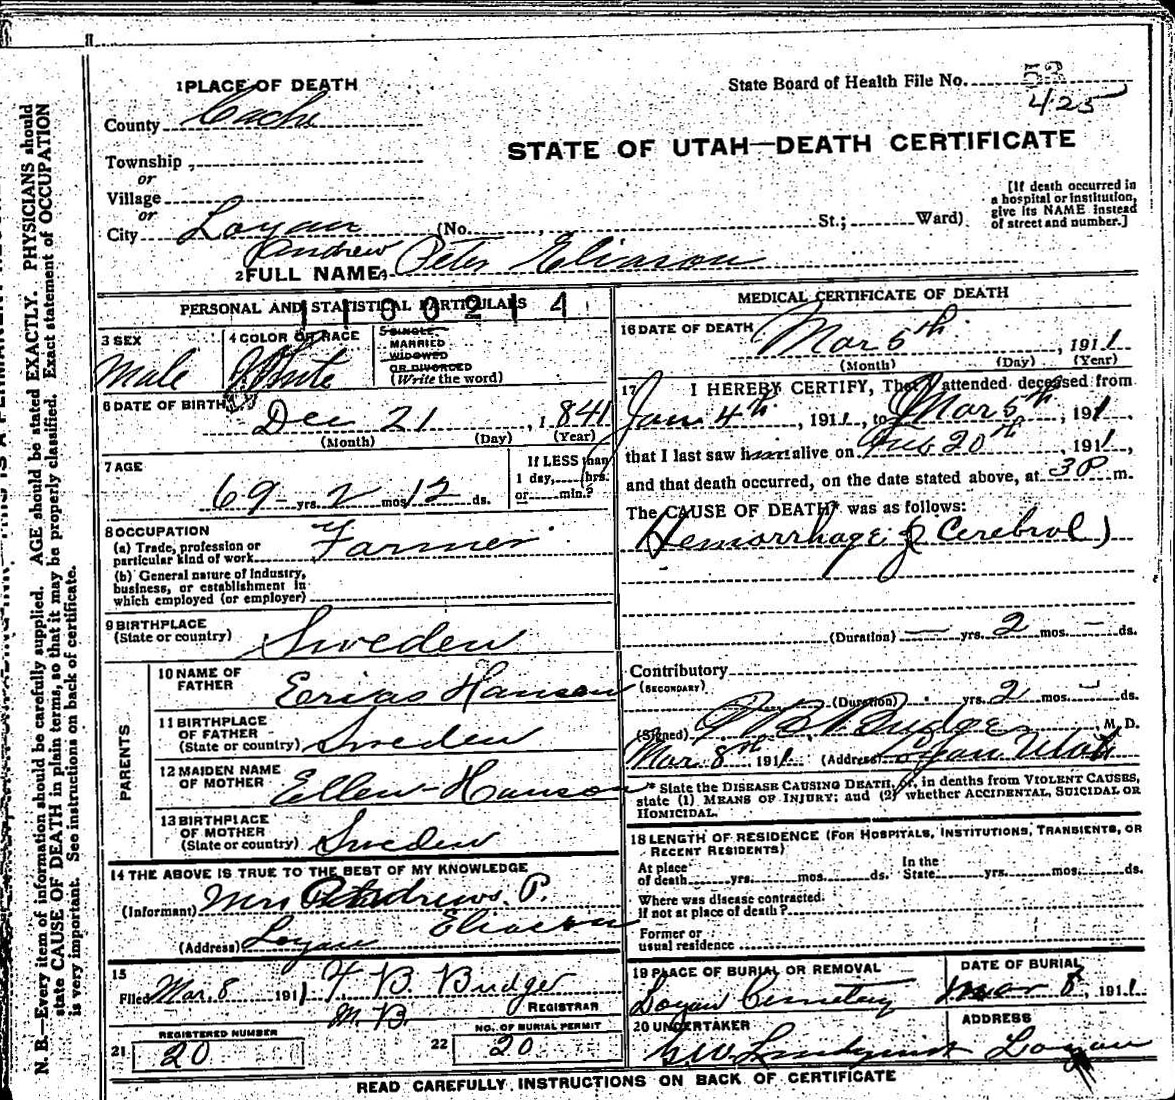 1 PLACE OF DEATH
State Board of Health File No. 53
425
County Cache
STATE OF UTAH—DEATH CERTIFICATE
Township
or
Village
or
City Logan (No. , St.; Ward)
[If death occurred in
a hospital or institution,
give its NAME instead
of street and number.]
Andrew
2 FULL NAME Peter Eliason
PERSONAL AND STATISTICAL PARTICULARS
1100214
3 SEX
Male
4 COLOR OR RACE
White
5 SINGLE
MARRIED
WIDOWED
OR DIVORCED
(Write the word)
6 DATE OF BIRTH
Dec 21, 1841
(Month) (Day) (Year)
7 AGE
69 yrs. 2 mos 12 ds.
If LESS than
1 day, hrs.
or min.?
8 OCCUPATION
(a) Trade, profession or
particular kind of work Farmer
(b) General nature of Industry,
business, or establishment in
which employed (or employer)
9 BIRTHPLACE
(State or country) Sweden
PARENTS
10 NAME OF
FATHER Hanson
11 BIRTHPLACE
OF FATHER
(State or country) Sweden
12 MAIDEN NAME
OF MOTHER Ellen Hanson
13 BIRTHPLACE
OF MOTHER
(State or country) Sweden
14 THE ABOVE IS TRUE TO THE BEST OF MY KNOWLEDGE
(Informant) Mrs Andrews P.
Eliason
(Address) Logan
15
Filed Mar. 8 1911 B. Budge
REGISTRAR
REGISTERED NUMBER
21 20
NO. OF BURIAL PERMIT
22 20
MEDICAL CERTIFICATE OF DEATH
16 DATE OF DEATH
Mar 5th, 1911
(Month) (Day) (Year)
17 I HEREBY CERTIFY, That I attended deceased from
Jan 4th, 1911, to Mar 5th, 1911,
that I last saw him alive on 20th, 1911,
and that death occurred, on the date stated above, at 3 P m.
The CAUSE OF DEATH* was as follows:
Hemorrhage (Cerebral)
(Duration) — yrs. 2 mos. — ds.
Contributory
(SECONDARY)
(Duration) yrs. 2 mos — ds.
(Signed) B Budge M. D.
Mar. 8th 1911 (Address) Logan Utah
* State the DISEASE CAUSING DEATH, or, in deaths from VIOLENT CAUSES,
state (1) MEANS OF INJURY; and (2) whether ACCIDENTAL, SUICIDAL OR
HOMICIDAL.
18 LENGTH OF RESIDENCE (FOR HOSPITALS, INSTITUTIONS, TRANSIENTS, OR
RECENT RESIDENTS)
At place
of death yrs. mos. ds.
In the
State yrs. mos. ds.
Where was disease contracted.
if not at place of death?
Former or
usual residence
19 PLACE OF BURIAL OR REMOVAL
Logan Cemetery
DATE OF BURIAL
Mar 8, 1911
20 UNDERTAKER
Lindquist
ADDRESS
Logan
READ CAREFULLY INSTRUCTIONS ON BACK OF CERTIFICATE
N. B.—Every item of information should be carefully supplied. AGE should be stated EXACTLY. PHYSICIANS should
state CAUSE OF DEATH in plain terms, so that it may be properly classified. Exact statement of OCCUPATION
is very important. See instructions on back of certificate.